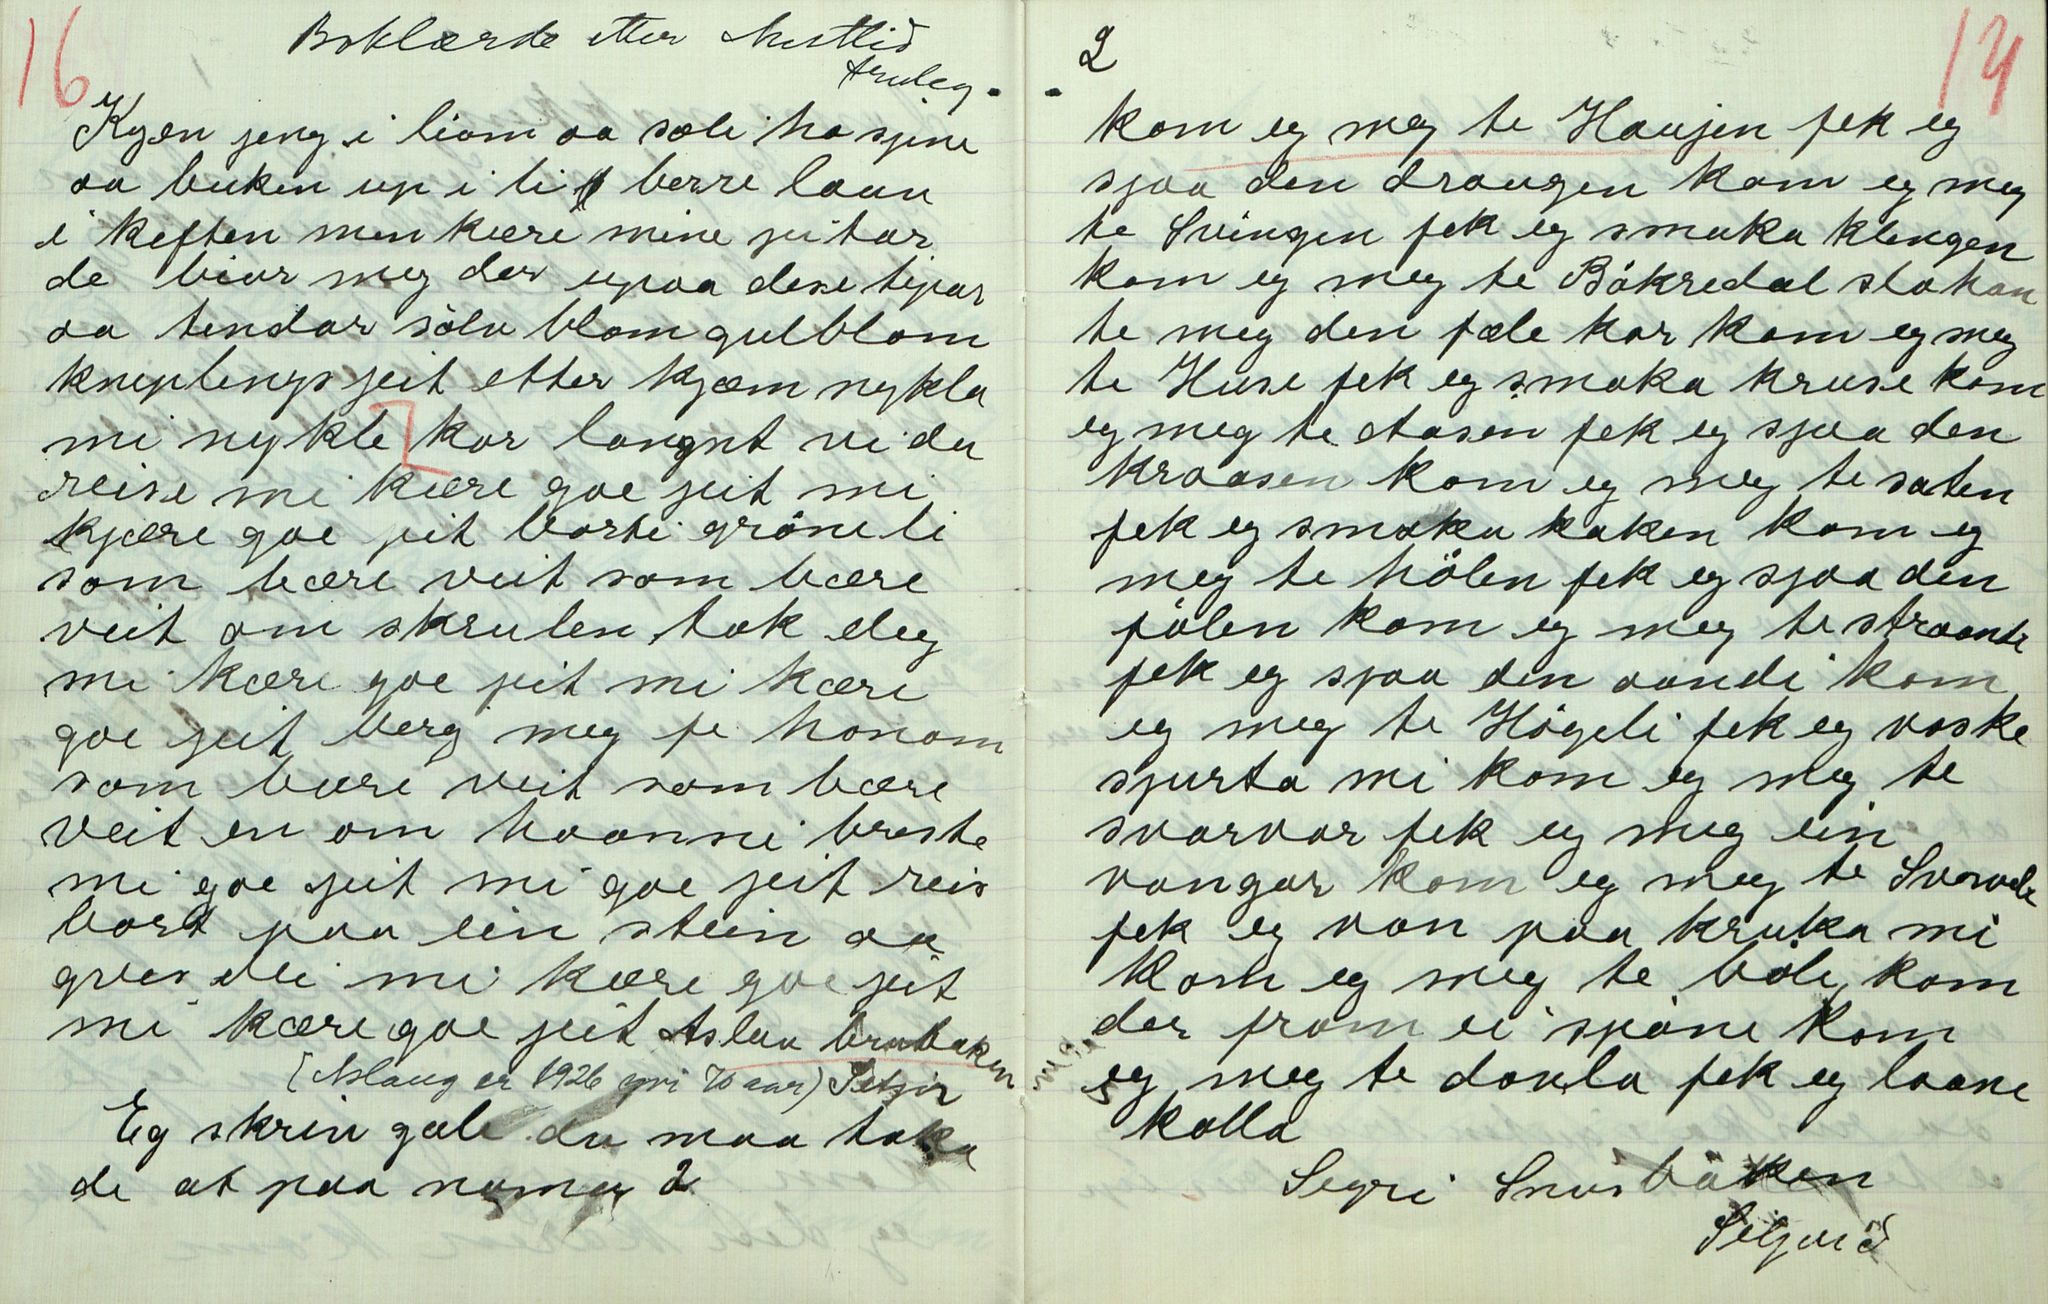 16
truleg.
Kyen jeng i liom aa sæli ho sjine
aa buken up i li berre laan
i keften men kære mine jeitar
de biar meg der upaa dese tijar
aa tendar sölv blom gulblom
kneplengs jeit etter kjæm nykla
mi nykle kor langnt vi du
reise mi kære goe jeit mi
kjære goe jeit borti gröne li
som bære veit som bære
veit om skrulen tok deg
mi kære goe jeit mi kære
goe jeit berg meg fe honom
som bære veit som bære
veit en om haanni breste
mi goe jeit mi goe jeit reis
bort paa ein stein aa
gres dei mi kære goe jeit
mi kære goe jeit Aslau brubaken
(Aslaug er 1926 yvi 70 aar)
Eg skrin gale du maa taka
de at paa numer 2
2
14
kom eg meg te Haujen fek eg
sjaa den draugen kom eg meg
te Svingen fek eg smaka klengen
kom eg meg te Bökredal sla han
te meg den fæle kar kom eg meg
te Huse fek eg smaka kruse kom
eg meg te Aasen fek eg sjaa den
kraasen kom eg meg te saten
fek eg smaka kaken kom eg
meg te hölen fek eg sjaa den
fölen kom eg meg te straande
fek eg sjaa den aandi kom
eg meg te Högeli fek eg vaske
sjurta mi kom eg meg te
svarvar fek eg meg ein
vangar kom eg meg te
fek eg van paa kruka mi
kom eg meg te böli kom
der fram ei spöne kom
eg meg te daula fek eg laane
kolla
Segri Snusbäken
Seljord